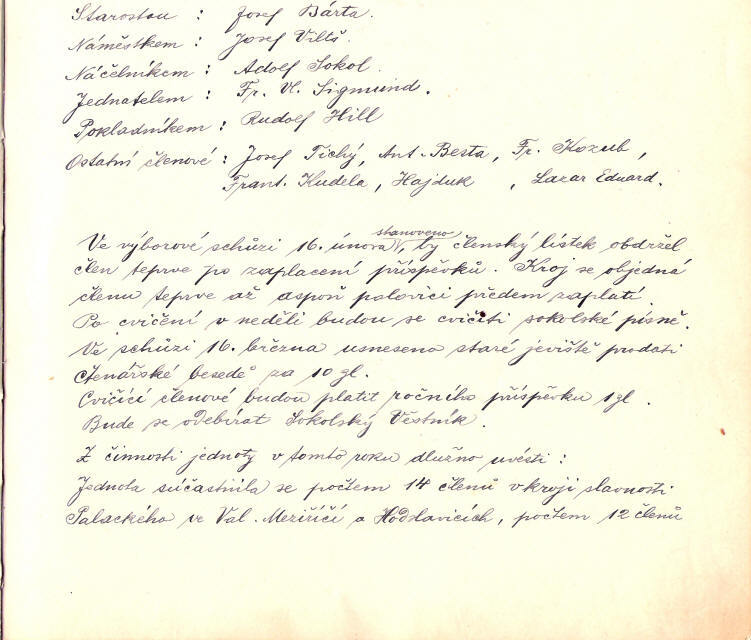 Starostou : Josef Bárta.
Náměstkem : Josef Viltš.
Náčelníkem : Adolf Sokol.
Jednatelem : Fr. Vl. Sigmund.
Pokladníkem : Rudolf Hill
Ostatní členové : Josef Tichý, Ant. Besta, Fr. Kozub,
Frant. Kudela, Hajduk , Lazar Eduard.
stanoveno
Ve výborové schůzi 16. února, by členský lístek obdržel
člen teprve po zaplacení příspěvků. Kroj se objedná
členu teprve až aspoň polovici předem zaplatí.
Po cvičení v neděli budou se cvičiti sokolské písně.
Ve schůzi 16. března usneseno staré jeviště prodati
čtenářské besedě za 10 zl.
Cvičící členové budou platit ročního příspěvku 1 zl.
Bude se odebírat Sokolský Věstník.
Z činnosti jednoty v tomto roku dlužno uvésti :
Jednota súčastnila se počtem 14 členů v kroji slavnosti
Palackého ve Val. Meziříčí a Hodslavicích, počtem 12 členů